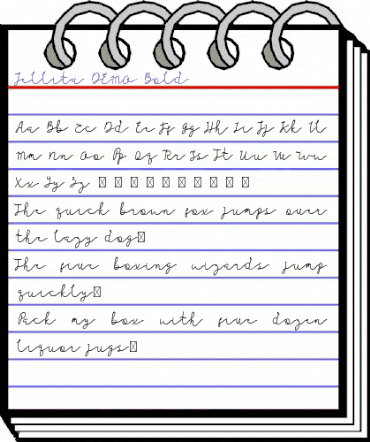 Jellita DEMO Bold
Aa Bb Cc Dd Ee Ff Gg Hh Ii Jj Kk Ll
Mm Nn Oo Pp Qq Rr Ss Tt Uu Vv Ww
Xx Yy Zz
The quick brown fox jumps over
the lazy dog
The five boxing wizards jump
quickly
Pack my box with five dozen
liquor jugs